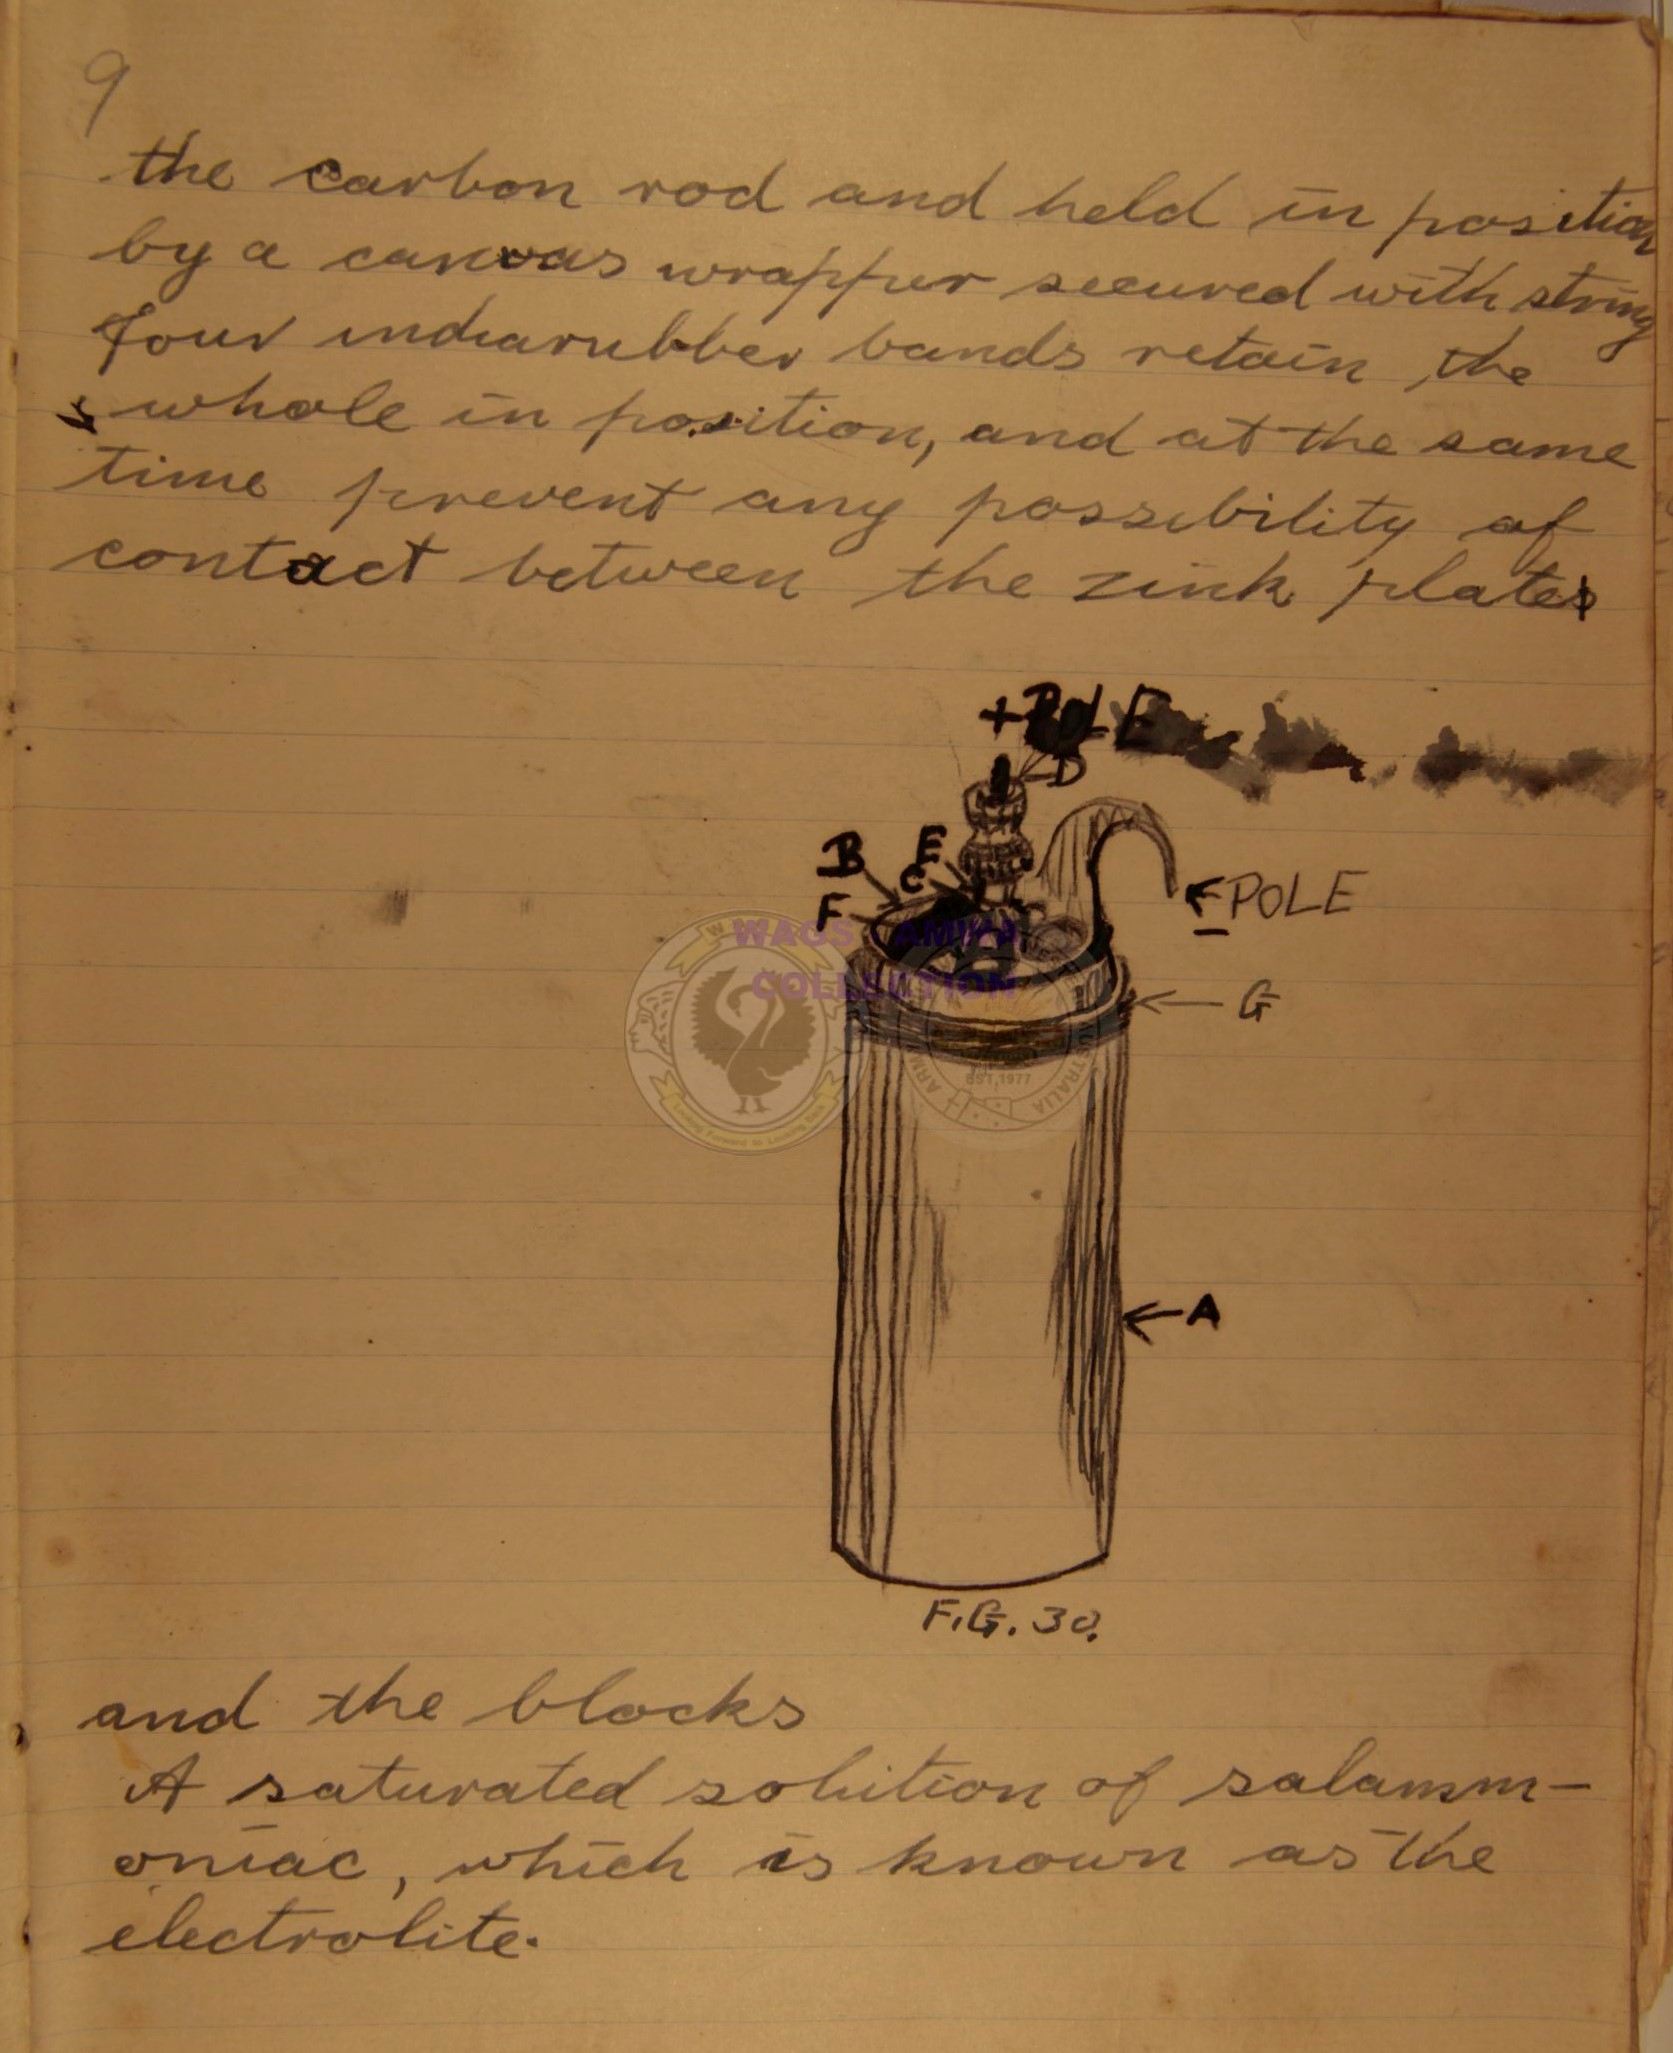 9
the carbon rod and held in position
by a canvas wrapper secured with string
four indiarubber bands retain the
whole in position, and at the same
time prevent any possibility of
contact between the zink plates
+POLE
D
B
E
C
F
POLE
-
G
WAGS AMWA
COLLECTION
EST, 1977
A
FIG. 30.
and the blocks
A saturated solution of salamm-
oniac, which is known as the
electrolite.